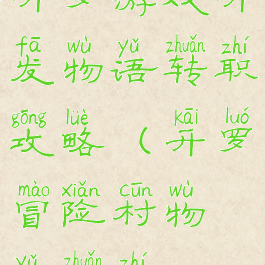 fā wù yǔ zhuǎn zhí
发物语转职
gōng lüè kāi luó
攻略（开罗
mào xiǎn cūn wù
冒险村物
yǔ zhuǎn zhí